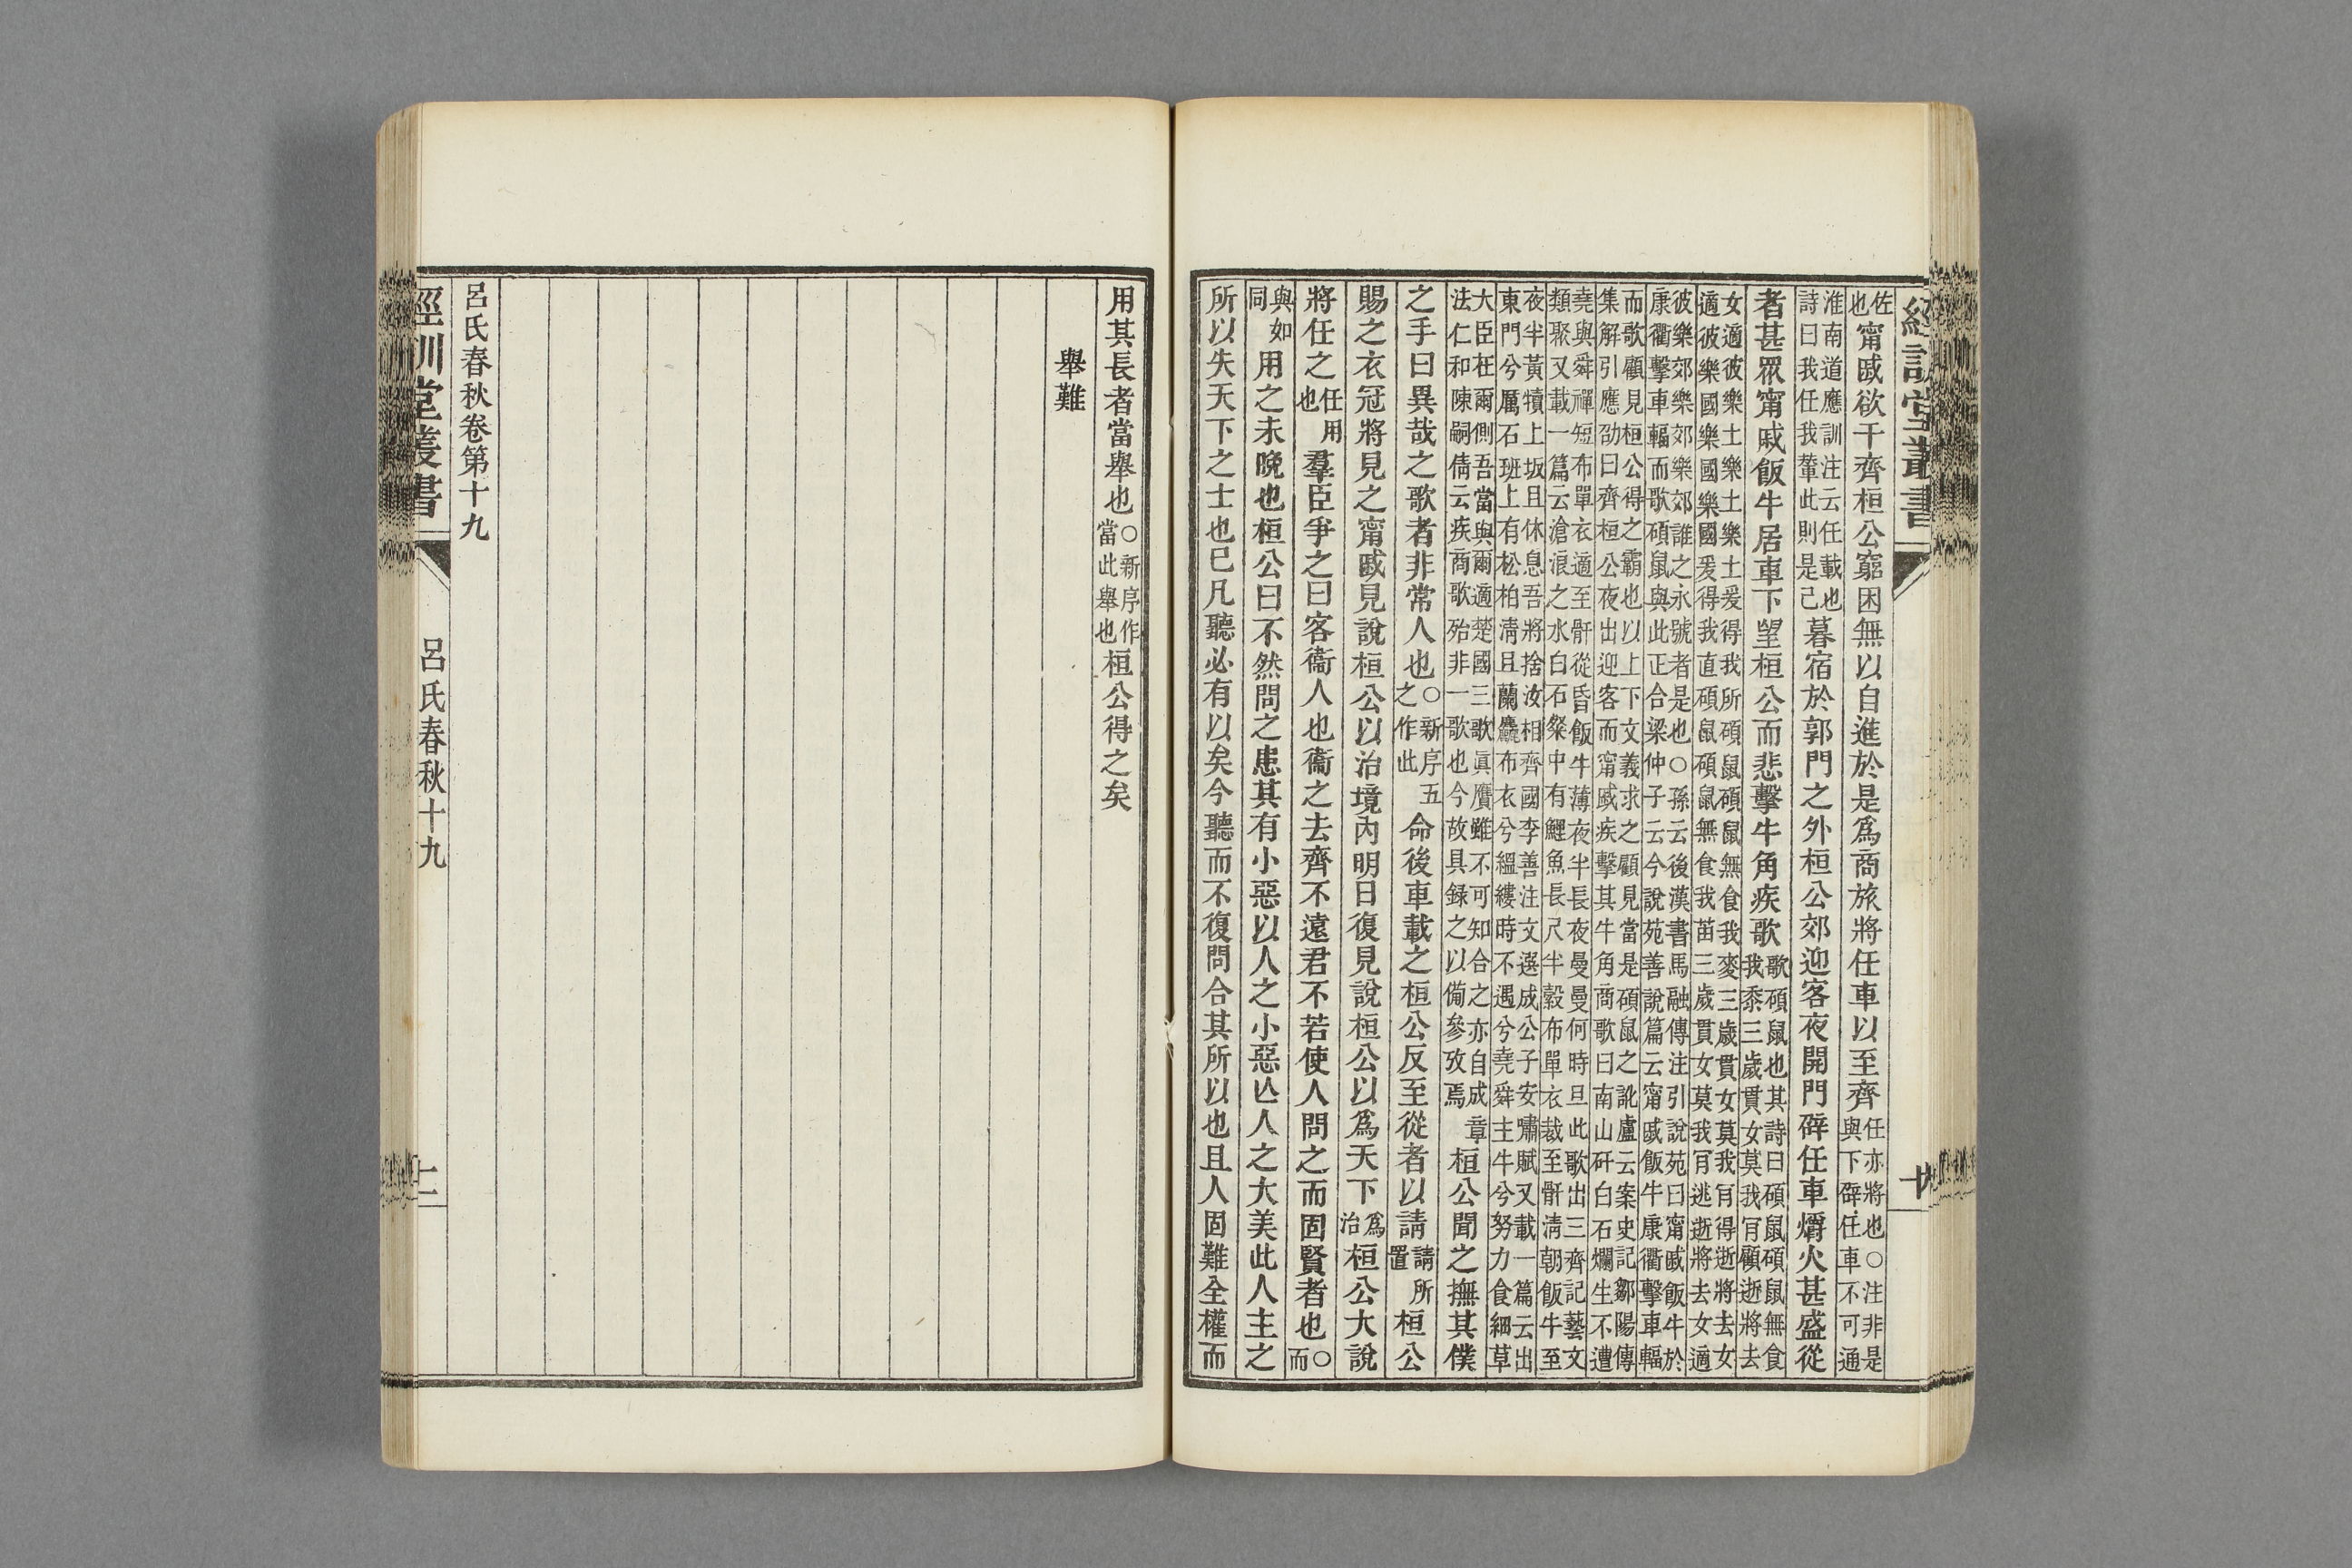 經訓堂叢書
佐也甯戚欲干齊桓公窮困無以自進於是爲商旅將任車以至齊任亦將也○注非是與下辟任車不可通
淮南道應訓注云任載也詩曰我任我輦此則是己暮宿於郭門之外桓公郊迎客夜開門辟任車爝火甚盛從
者甚眾甯戚飯牛居車下望桓公而悲擊牛角疾歌歌碩鼠也其詩曰碩鼠碩鼠無食我黍三歲貫女莫我肯顧逝將去
女適彼樂土樂土樂土爰得我所碩鼠碩鼠無食我麥三歲貫女莫我肯得逝將去女
適彼樂國樂國樂國爰得我直碩鼠碩鼠無食我苗三歲貫女莫我肯逃逝將去女適
彼樂郊樂郊樂郊誰之永號者是也○孫云後漢書馬融傳注引說苑曰甯戚飯牛於
康衢擊車輻而歌碩鼠與此正合梁仲子云今說苑善說篇云甯戚飯牛康衢擊車輻
而歌顧見桓公得之霸也以上下文義求之顧見當是碩鼠之訛盧云案史記鄒陽傳
集解引應劭曰齊桓公夜出迎客而甯戚疾擊其牛角商歌曰南山矸白石爛生不遭
堯與舜禪短布單衣適至骭從昏飯牛薄夜半長夜曼曼何時旦此歌出三齊記藝文
類聚又載一篇云滄浪之水白石粲中有鯉魚長尺半縠布單衣裁至骭淸朝飯牛至
夜半黃犢上坂且休息吾將捨汝相齊國李善注文選成公子安嘯賦又載一篇云出
東門兮厲石班上有松柏淸且蘭麤布衣兮縕縷時不遇兮堯舜主牛兮努力食細草
大臣在爾側吾當與爾適楚國三歌眞贗雖不可知合之亦自成章
法仁和陳嗣倩云疾商歌殆非一歌也今故具録之以備參攷焉桓公聞之撫其僕
之手曰異哉之歌者非常人也○新序五之作此命後車載之桓公反至從者以請請所置桓公
賜之衣冠將見之甯戚見說桓公以治境內明日復見說桓公以爲天下爲治桓公大說
將任之任用也羣臣爭之曰客衞人也衞之去齊不遠君不若使人問之而固賢者也○而
與如同用之未晚也桓公曰不然問之患其有小惡以人之小惡亾人之大美此人主之
所以失天下之士也已凡聽必有以矣今聽而不復問合其所以也且人固難全權而
用其長者當舉也○新序作當此舉也桓公得之矣
舉難
呂氏春秋卷第十九
經訓堂叢書
呂氏春秋十九